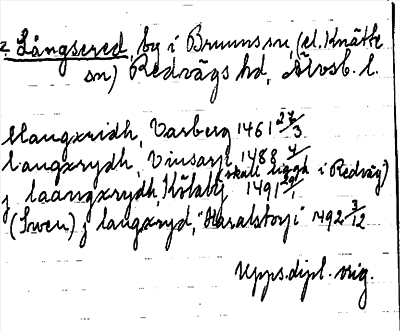 Långsered, by i Brunns sn, (el. Knätte
sn) Redvägs hd, Älvsb. l.
Llangxridh, Varberg 1461 27/3
langxrydh, Vinsarp, 1488 4/
j laangxrydh, Kölaby (skall ligga i Redväg) 1491 29/1
(Swen) j langxryd, Haralstorp i 1492 3/12
Upps. dipl. orig.